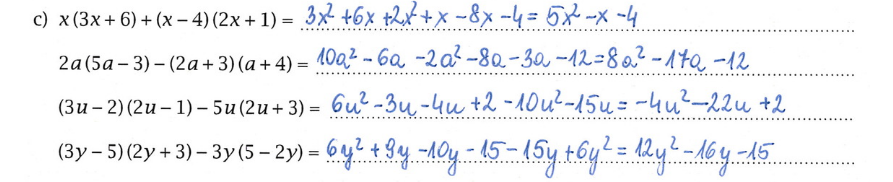 c) x(3x+6)+(x−4)(2x+1) = 3x² +6x +2x² +x −8x −4 = 5x² −x −4
2a(5a−3)−(2a+3)(a+4) = 10a² −6a −2a² −8a −3a −12 = 8a² −17a −12
(3u−2)(2u−1)−5u(2u+3) = 6u² −3u −4u +2 −10u² −15u = −4u² −22u +2
(3y−5)(2y+3)−3y(5−2y) = 6y² +9y −10y −15 −15y +6y² = 12y² −16y −15